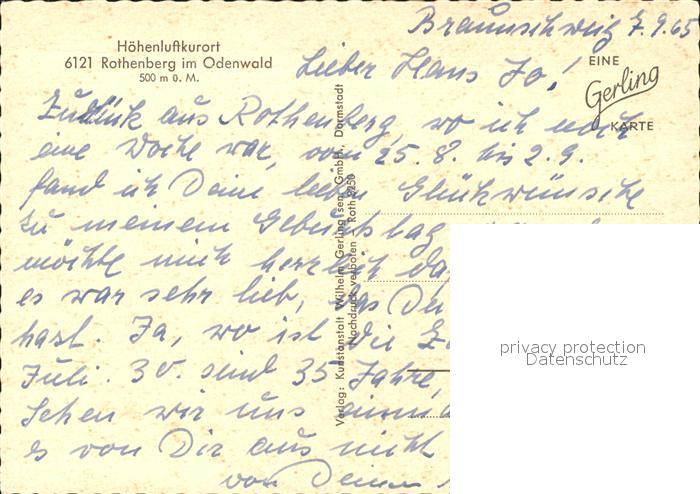 Braunschweig 7.9.65
Höhenluftkurort
6121 Rothenberg im Odenwald
500 m ü. M.
EINE
Gerling
KARTE
Lieber Hans Jo!
Zurück aus Rothenberg, wo ich noch
eine Woche war, vom 25.8. bis 2.9.
fand ich Deine lieben Glückwünsche
zu meinem Geburtstag
möchte mich herzlich
es war sehr lieb, das Du
hast. Ja, wo ist die
Juli. 30. sind 35 Jahre,
Sehen wir uns
es von Dir aus nicht
von Deinen
Verlag: Kunstanstalt Wilhelm Gerling sen. GmbH., Darmstadt
Nachdruck verboten – Roth 9250
privacy protection
Datenschutz